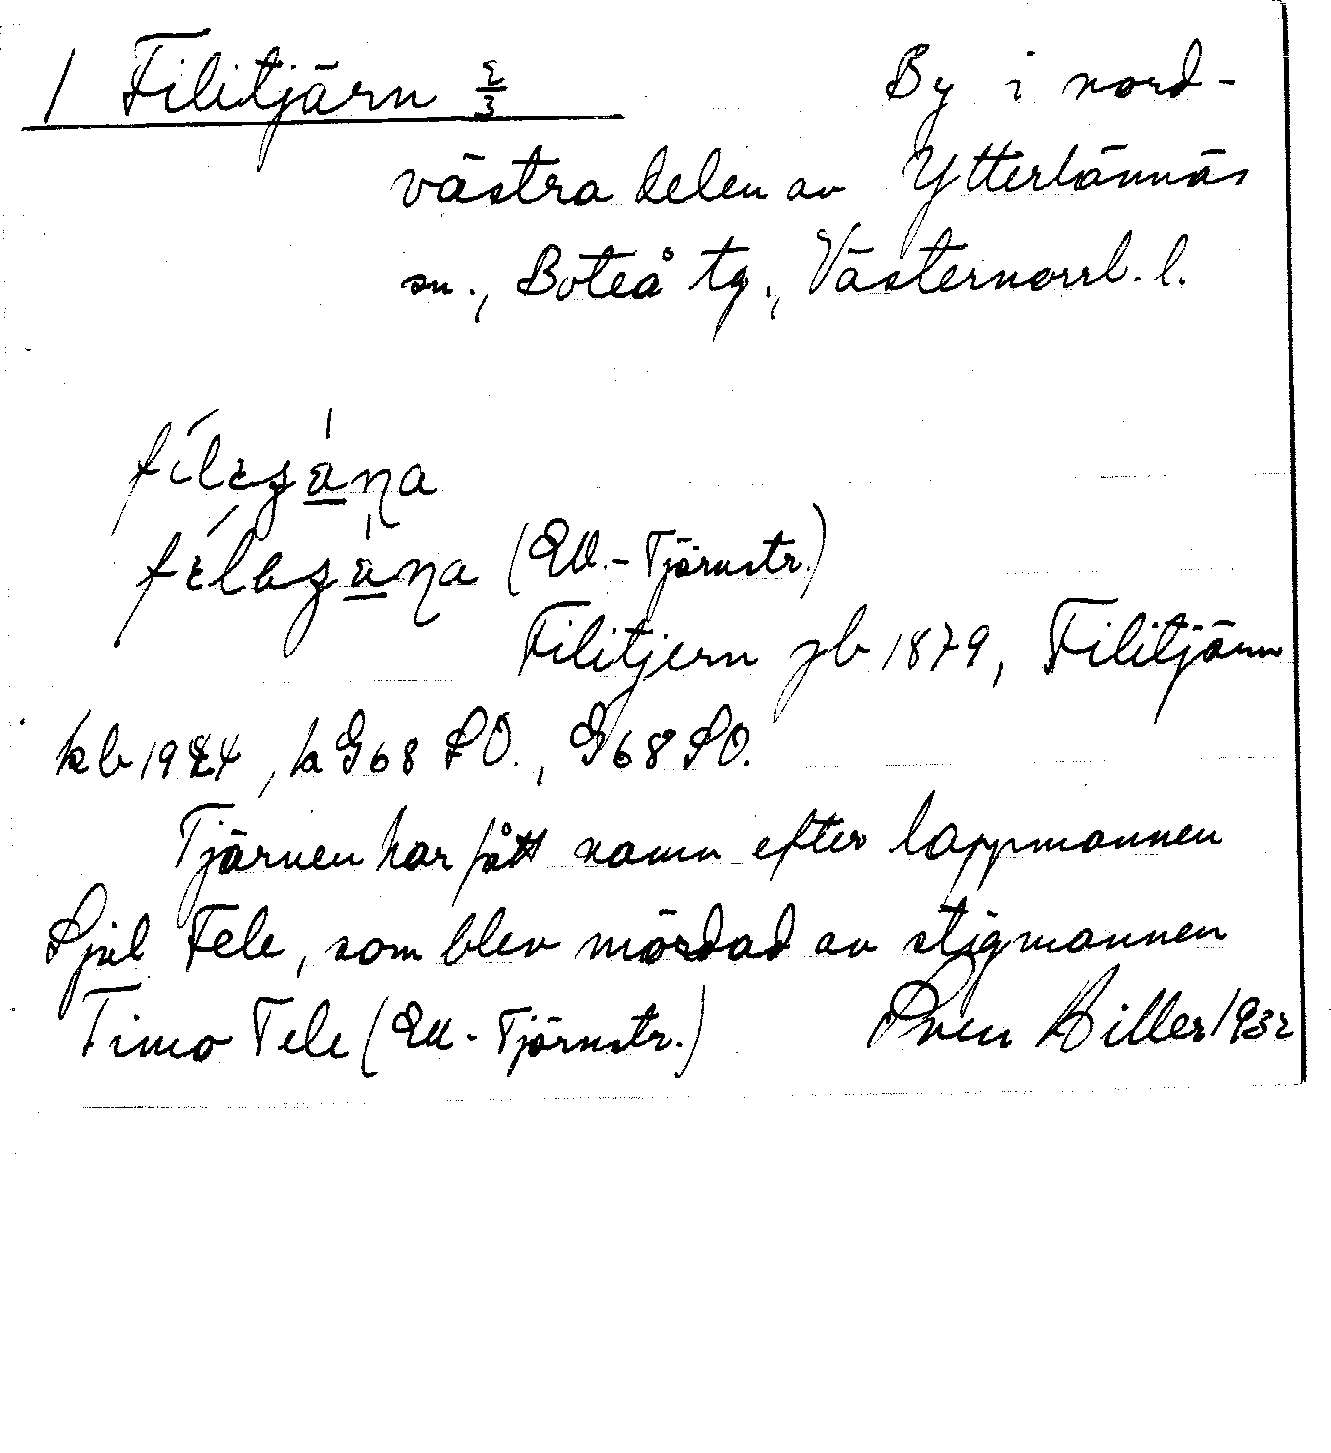 1 Filitjärn 2/3 By i nord-
västra delen av Ytterlännäs
sn., Boteå tg., Västernorrl. l.
(Ell.-Tjärnstr.)
Filitjern jb 1879, Filitjärn
kb 1924, kG68 SO., G68 SO.
Tjärnen har fått namn efter lappmannen
Sjul Fele, som blev mördad av stigmannen
Timo Tele (Ell.-Tjärnstr.) Sven Hiller 1932